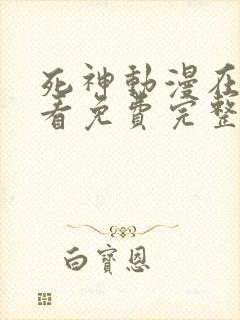 死神動漫在
看免費完整
白寶恩